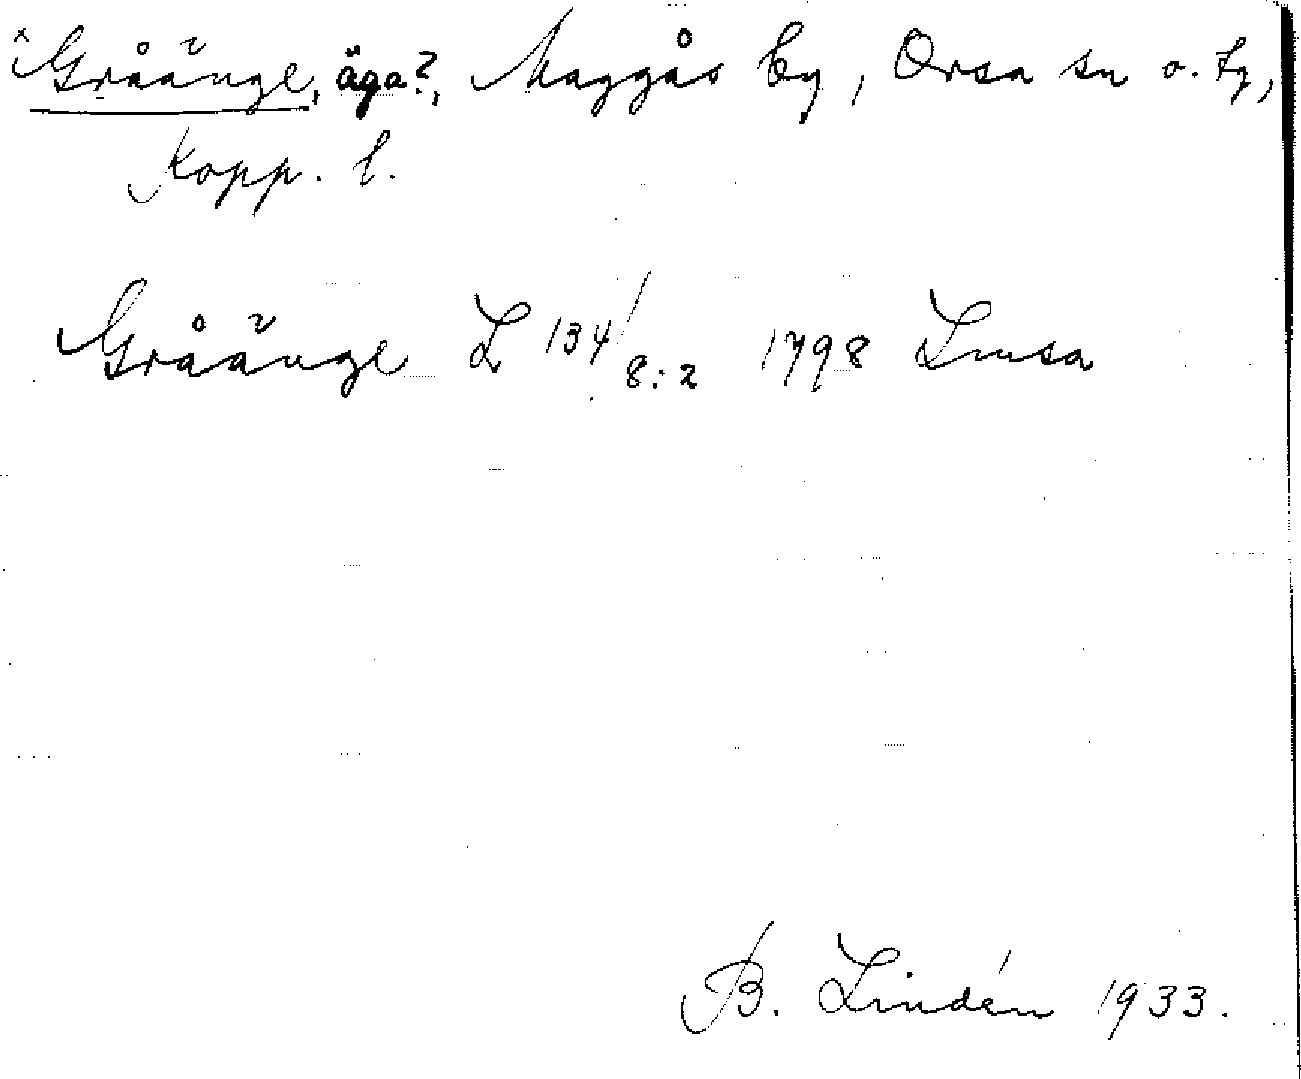 x Gråänge, äga?, Maggås by, Orsa sn o. tg,
Kopp. l.
Gråänge L 134/8:2 1798 Lmsa
B. Lindén 1933.